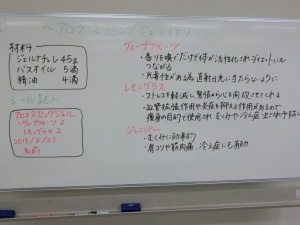 〜アロマ スリミングジェル作り〜
材料
ジェルナチュレ 45g
バスオイル 5滴
精油 4滴
シール記入
アロマスリミングジェル
・グレープフルーツ 2
・レモングラス 2
2013/8/23
グレープフルーツ
・香りを嗅ぐだけで体が活性化されダイエットにも
つながる
・光毒性がある為 直射日光に当たらないように
レモングラス
・ストレスを軽減し、緊張から心を開放させてくれる。
・血管拡張作用や炎症を抑える作用があるので
痩身の目的で使用され むくみや冷え症
ジュニパー
・むくみに効果的
・肩コリや筋肉痛、冷え症にも有効